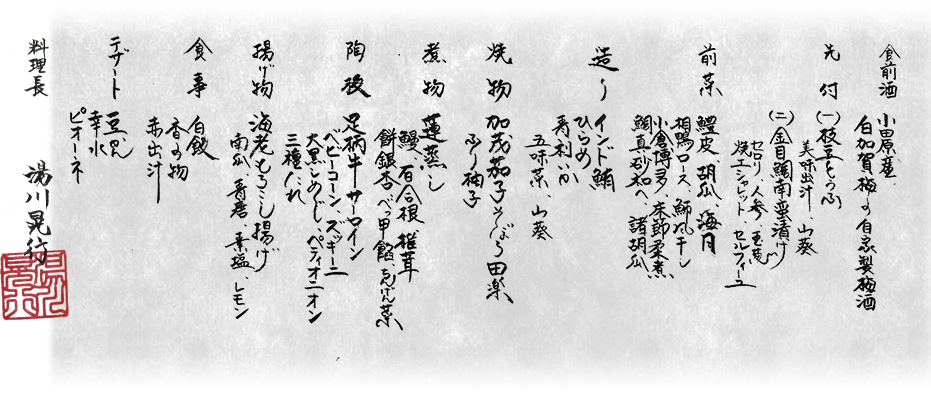 食前酒
小田原産
白加賀梅の自家製梅酒
先付
(一)枝豆とうふ
美味出汁、山葵
(二)金目鯛南蛮漬け
セロリ、人参、玉葱
焼エシャレット セルフィーユ
前菜
鱧皮、胡瓜、海月
相鴨ロース、鰤風干し
小倉博多、床節柔煮
鯛真砂和へ、諸胡瓜
造り
インド鮪
ひらめ
青利いか
五味菜、山葵
焼物
加茂茄子そぼろ田楽
ふり柚子
煮物
蓮蒸し
鰻、百合根、椎茸
餅銀杏、べっ甲餡、ちんげん菜
陶板
足柄牛サーロイン
ベビーコーン、ズッキーニ
大黒しめじ、ペティオニオン
三種たれ
揚げ物
海老もろこし揚げ
南瓜、青唐、素塩、レモン
食事
白飯
香の物
赤出汁
デザート
豆かん
幸水
ピオーネ
料理長
湯川晃行